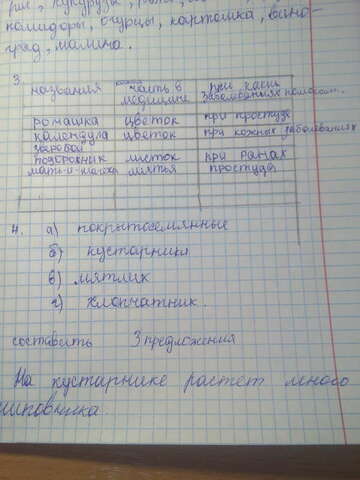 рис, кукурузы,
помидоры, огурцы, картошка, вино-
град, малина.
3.
названия часть в медицине при каких заболеваниях помогает.
ромашка цветок при простуде
календула цветок при кожных заболеваниях
зверобой
подорожник листок при ранах
мать-и-мачеха листья простуды
4. а) покрытосемянные
б) кустарники
в) мятлик
г) хлопчатник.
составить 3 предложения
На кустарнике растет много
шиповника